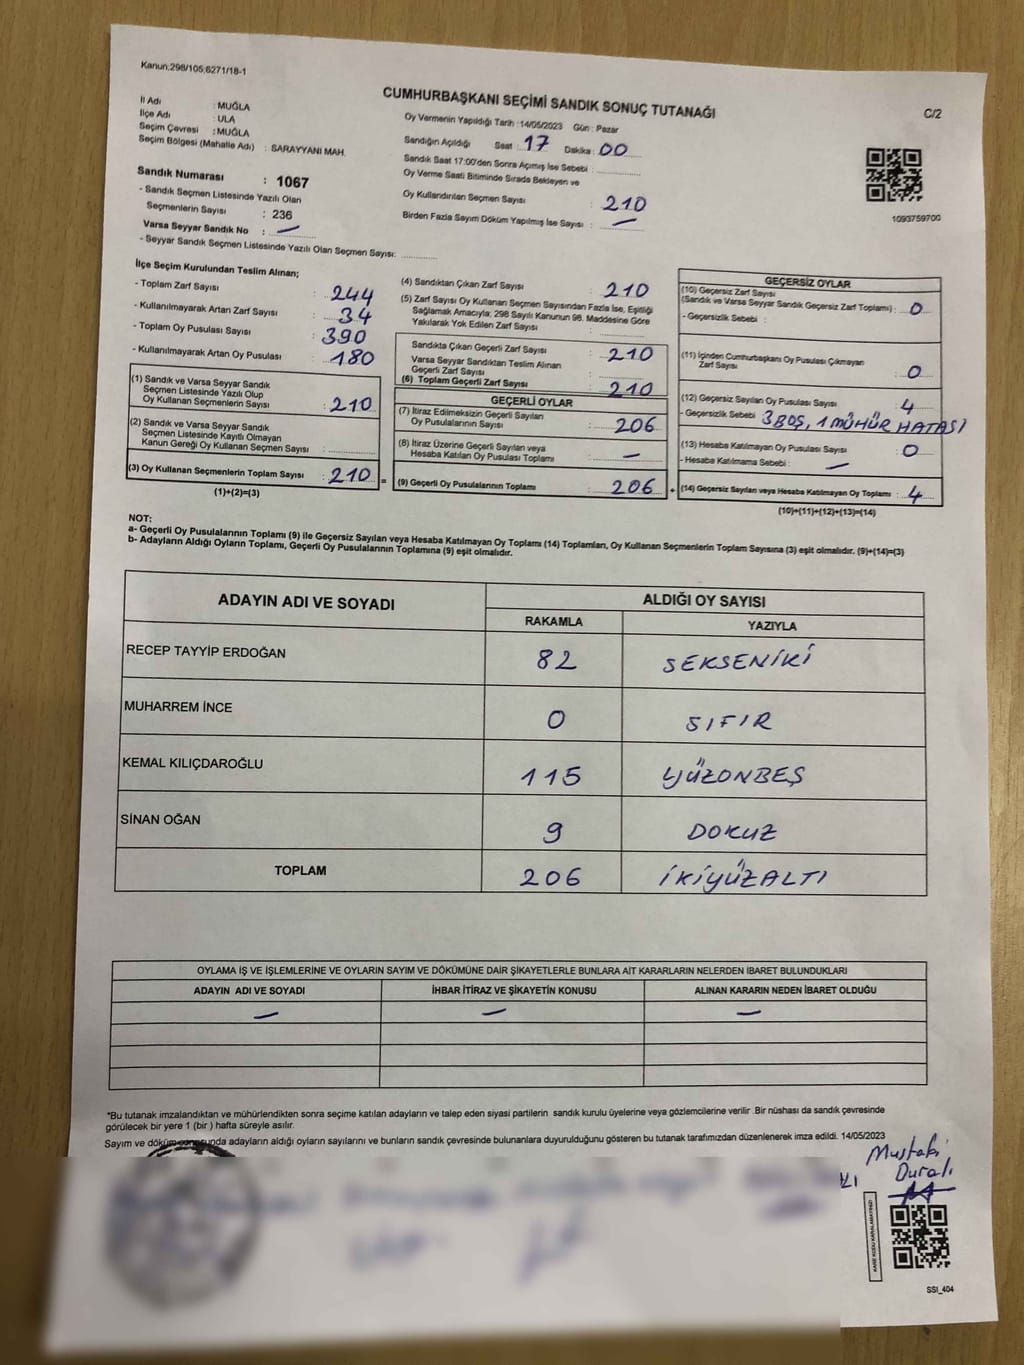 Kanun:298/105;6271/18-1
CUMHURBAŞKANI SEÇİMİ SANDIK SONUÇ TUTANAĞI
C/2
İl Adı : MUĞLA
İlçe Adı : ULA
Seçim Çevresi : MUĞLA
Seçim Bölgesi (Mahalle Adı) : SARAYYANI MAH.
Sandık Numarası : 1067
- Sandık Seçmen Listesinde Yazılı Olan
Seçmenlerin Sayısı : 236
Varsa Seyyar Sandık No : —
- Seyyar Sandık Seçmen Listesinde Yazılı Olan Seçmen Sayısı:
Oy Vermenin Yapıldığı Tarih :14/05/2023 Gün : Pazar
Sandığın Açıldığı Saat : 17 Dakika : 00
Sandık Saat 17:00'den Sonra Açılmış İse Sebebi :
Oy Verme Saati Bitiminde Sırada Bekleyen ve
Oy Kullandırılan Seçmen Sayısı : 210
Birden Fazla Sayım Döküm Yapılmış İse Sayısı : —
1093759700
İlçe Seçim Kurulundan Teslim Alınan;
- Toplam Zarf Sayısı : 244
- Kullanılmayarak Artan Zarf Sayısı : 34
- Toplam Oy Pusulası Sayısı : 390
- Kullanılmayarak Artan Oy Pusulası : 180
(1) Sandık ve Varsa Seyyar Sandık
Seçmen Listesinde Yazılı Olup
Oy Kullanan Seçmenlerin Sayısı : 210
(2) Sandık ve Varsa Seyyar Sandık
Seçmen Listesinde Kayıtlı Olmayan
Kanun Gereği Oy Kullanan Seçmen Sayısı :
(3) Oy Kullanan Seçmenlerin Toplam Sayısı : 210 =
(1)+(2)=(3)
(4) Sandıktan Çıkan Zarf Sayısı : 210
(5) Zarf Sayısı Oy Kullanan Seçmen Sayısından Fazla İse, Eşitliği
Sağlamak Amacıyla; 298 Sayılı Kanunun 98. Maddesine Göre
Yakılarak Yok Edilen Zarf Sayısı :
Sandıkta Çıkan Geçerli Zarf Sayısı : 210
Varsa Seyyar Sandıktan Teslim Alınan
Geçerli Zarf Sayısı :
(6) Toplam Geçerli Zarf Sayısı : 210
GEÇERLİ OYLAR
(7) İtiraz Edilmeksizin Geçerli Sayılan
Oy Pusulalarının Sayısı : 206
(8) İtiraz Üzerine Geçerli Sayılan veya
Hesaba Katılan Oy Pusulası Toplamı : —
(9) Geçerli Oy Pusulalarının Toplamı : 206 +
GEÇERSİZ OYLAR
(10) Geçersiz Zarf Sayısı
(Sandık ve Varsa Seyyar Sandık Geçersiz Zarf Toplamı) : 0
- Geçersizlik Sebebi :
(11) İçinden Cumhurbaşkanı Oy Pusulası Çıkmayan
Zarf Sayısı : 0
(12) Geçersiz Sayılan Oy Pusulası Sayısı : 4
- Geçersizlik Sebebi : 3 BOŞ, 1 MÜHÜR HATASI
(13) Hesaba Katılmayan Oy Pusulası Sayısı : 0
- Hesaba Katılmama Sebebi : —
(14) Geçersiz Sayılan veya Hesaba Katılmayan Oy Toplamı : 4
(10)+(11)+(12)+(13)=(14)
NOT:
a- Geçerli Oy Pusulalarının Toplamı (9) ile Geçersiz Sayılan veya Hesaba Katılmayan Oy Toplamı (14) Toplamları, Oy Kullanan Seçmenlerin Toplam Sayısına (3) eşit olmalıdır. (9)+(14)=(3)
b- Adayların Aldığı Oyların Toplamı, Geçerli Oy Pusulalarının Toplamına (9) eşit olmalıdır.
ADAYIN ADI VE SOYADI ALDIĞI OY SAYISI
RAKAMLA YAZIYLA
RECEP TAYYİP ERDOĞAN 82 SEKSENİKİ
MUHARREM İNCE 0 SIFIR
KEMAL KILIÇDAROĞLU 115 YÜZONBEŞ
SİNAN OĞAN 9 DOKUZ
TOPLAM 206 İKİYÜZALTI
OYLAMA İŞ VE İŞLEMLERİNE VE OYLARIN SAYIM VE DÖKÜMÜNE DAİR ŞİKAYETLERLE BUNLARA AİT KARARLARIN NELERDEN İBARET BULUNDUKLARI
ADAYIN ADI VE SOYADI İHBAR İTİRAZ VE ŞİKAYETİN KONUSU ALINAN KARARIN NEDEN İBARET OLDUĞU
— — —
*Bu tutanak imzalandıktan ve mühürlendikten sonra seçime katılan adayların ve talep eden siyasi partilerin sandık kurulu üyelerine veya gözlemcilerine verilir .Bir nüshası da sandık çevresinde
görülecek bir yere 1 (bir ) hafta süreyle asılır.
Sayım ve döküm sonusunda adayların aldığı oyların sayılarını ve bunların sandık çevresinde bulunanlara duyurulduğunu gösteren bu tutanak tarafımızdan düzenlenerek imza edildi. 14/05/2023
Mustafi
Durali
KARE KODU KARALAMAYINIZ!
SSİ_404